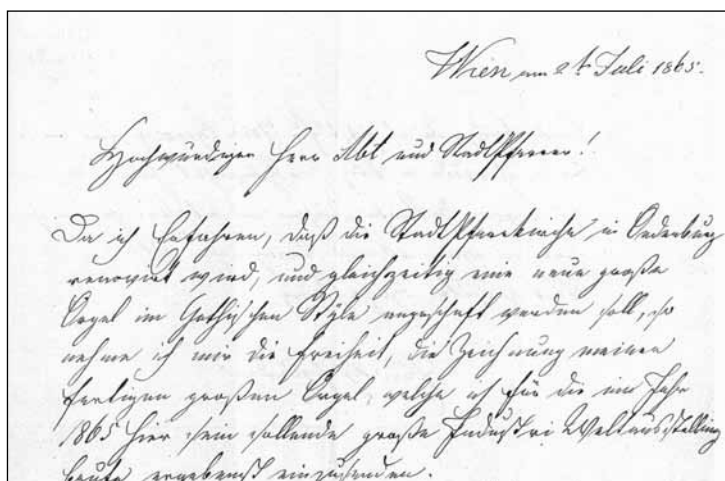 Wien am 2t. Juli 1865.
Hochwürdiger Herr Abt und Stadtpfarrer!
Da ich Erfahren, daß die Stadtpfarrkirche in Oedenburg
renovirt wird, und gleichzeitig eine neue große
Orgel im Gothischen Style angeschaft werden soll, so
nehme ich mir die Freiheit, die Zeichnung meiner
fertigen großen Orgel, welche ich für die im Jahr
1865 hier sein sollende große Industri Weltausstellung
baute ergebenst einzusenden.